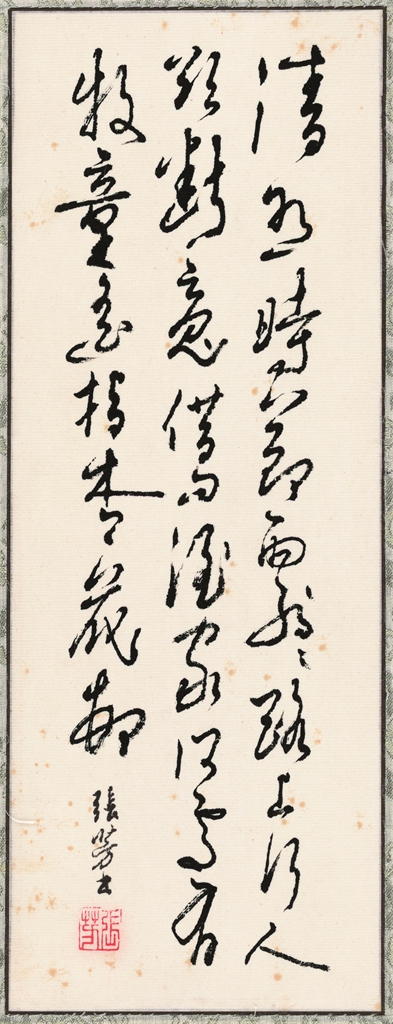 清明時節雨紛〻路上行人
欲斷魂借問酒家何處有
牧童遙指杏花邨
張芳書